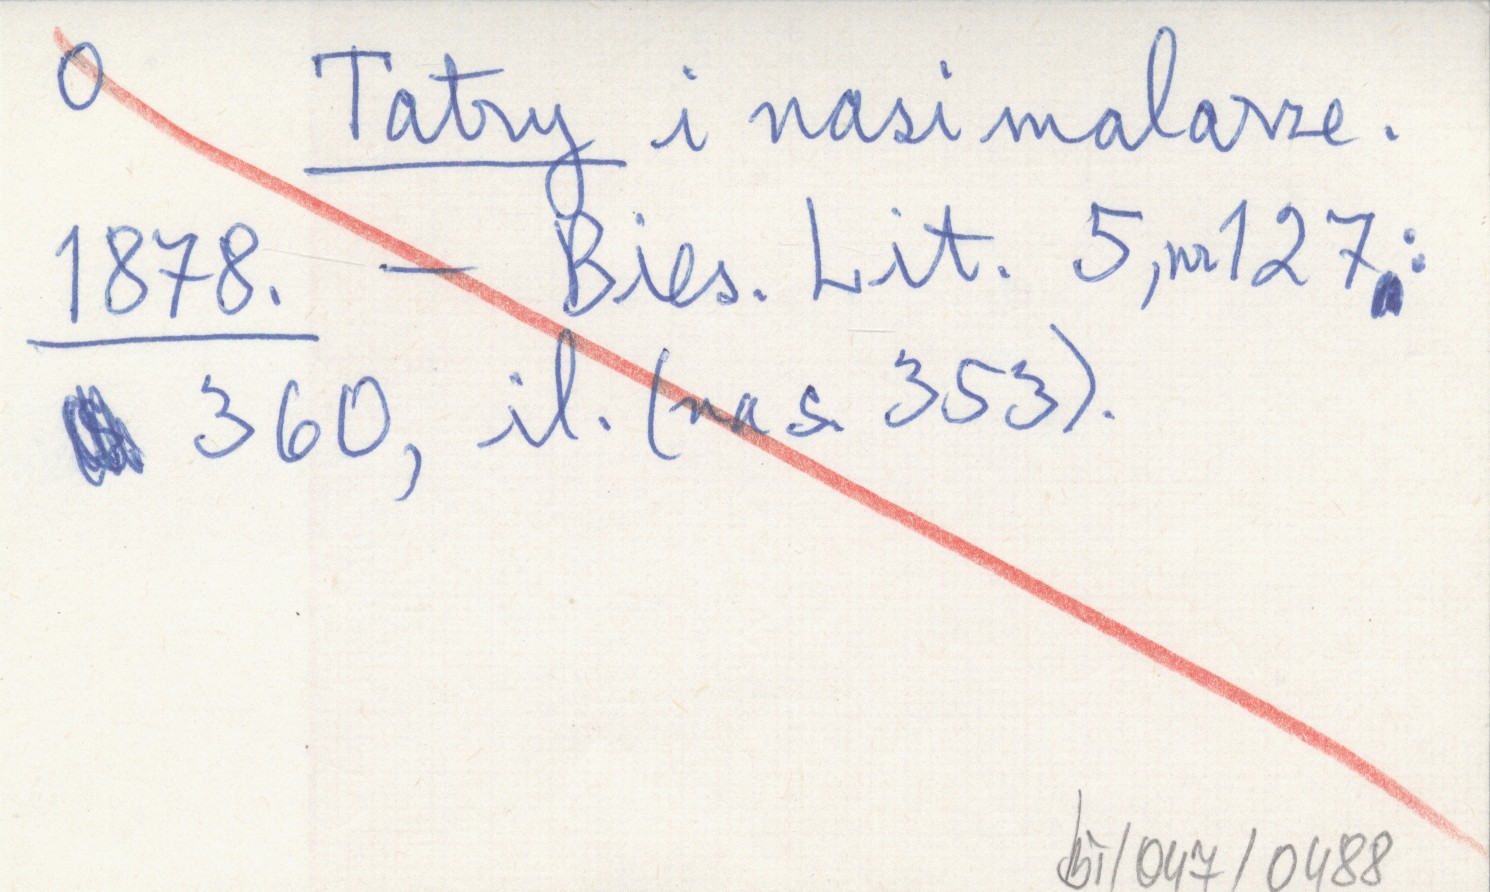 0 Tatry i nasi malarze.
1878. — Bies. Lit. 5, nr 127:
360, il. (na s. 353).
bi/047/0488